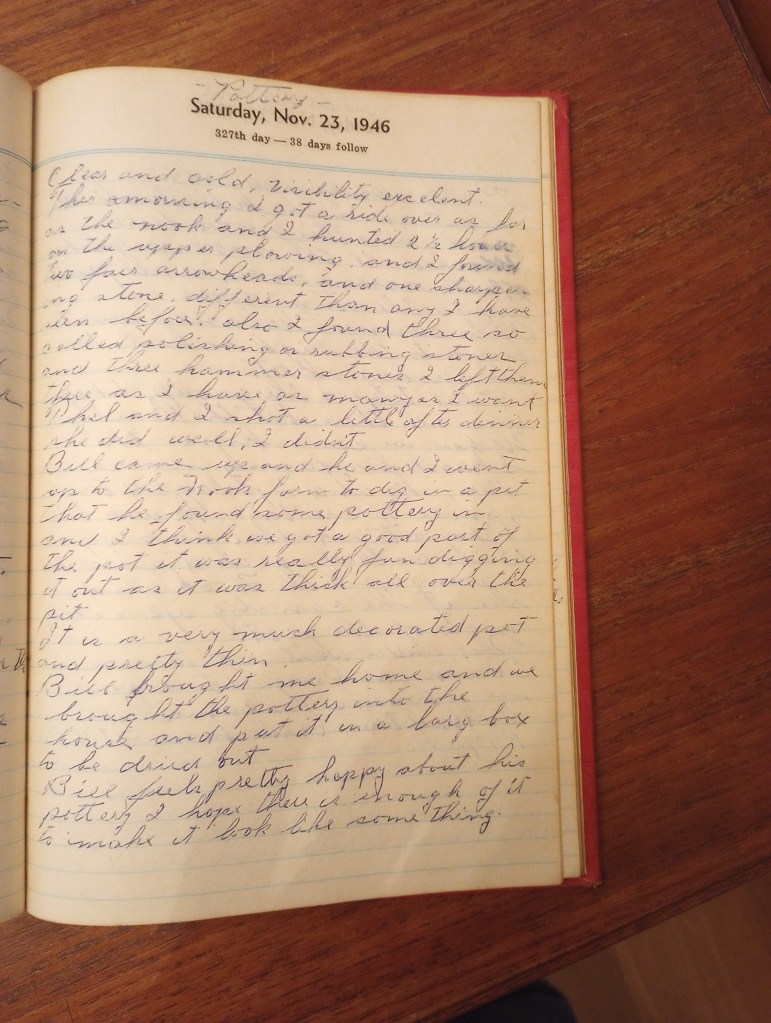 - Pottery -
Saturday, Nov. 23, 1946
327th day — 38 days follow
Clear and cold, visibility excelent.
This morning I got a ride over as far
as the nook and I hunted 2 ½ hours
on the upper plowing. and I found
two fair arrowheads, and one sharpen-
ing stone. different than any I have
seen before. also I found three so
called polishing or rubbing stones
and three hammer stones I left them
there as I have as many as I want
Thel and I shot a little after dinner
she did well, I didn't
Bill came up and he and I went
up to the Nook farm to dig in a pit
that he found some pottery in
and I think we got a good part of
the pot it was really fun digging
it out as it was thick all over the
pit
It is a very much decorated pot
and pretty thin.
Bill brought me home and we
brought the pottery into the
house and put it in a larg box
to be dried out
Bill feels pretty happy about his
pottery I hope there is enough of it
to make it look like some thing.